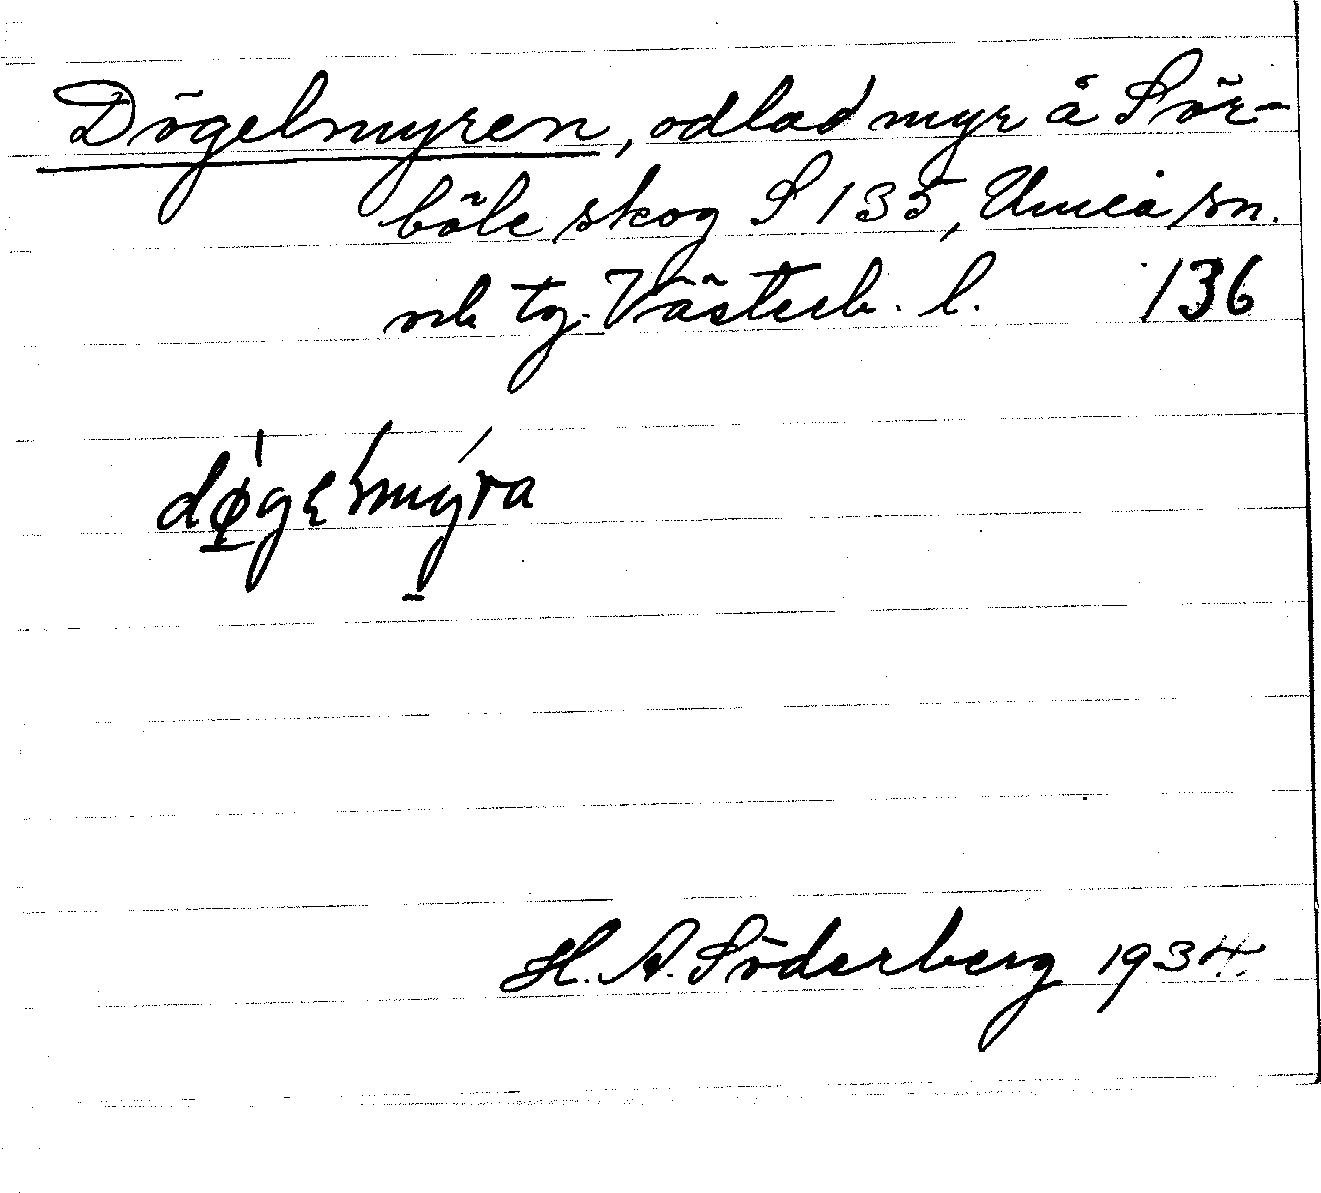 Dögelmyren, odlad myr å Sör-
böle skog S 135, Umeå sn.
och tg. Västerb. l. 136
døgelmyra
H. A. Söderberg 1934.